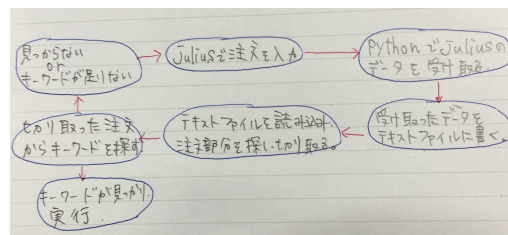 見つからない
or
キーワードが足りない
Juliusで注文を入力
PythonでJuliusの
データを受け取る.
受け取ったデータを
テキストファイルに書く.
テキストファイルを読み込み.
注文部分を探し切り取る。
切り取った注文
からキーワードを探す
キーワードが見つかり.
実行.